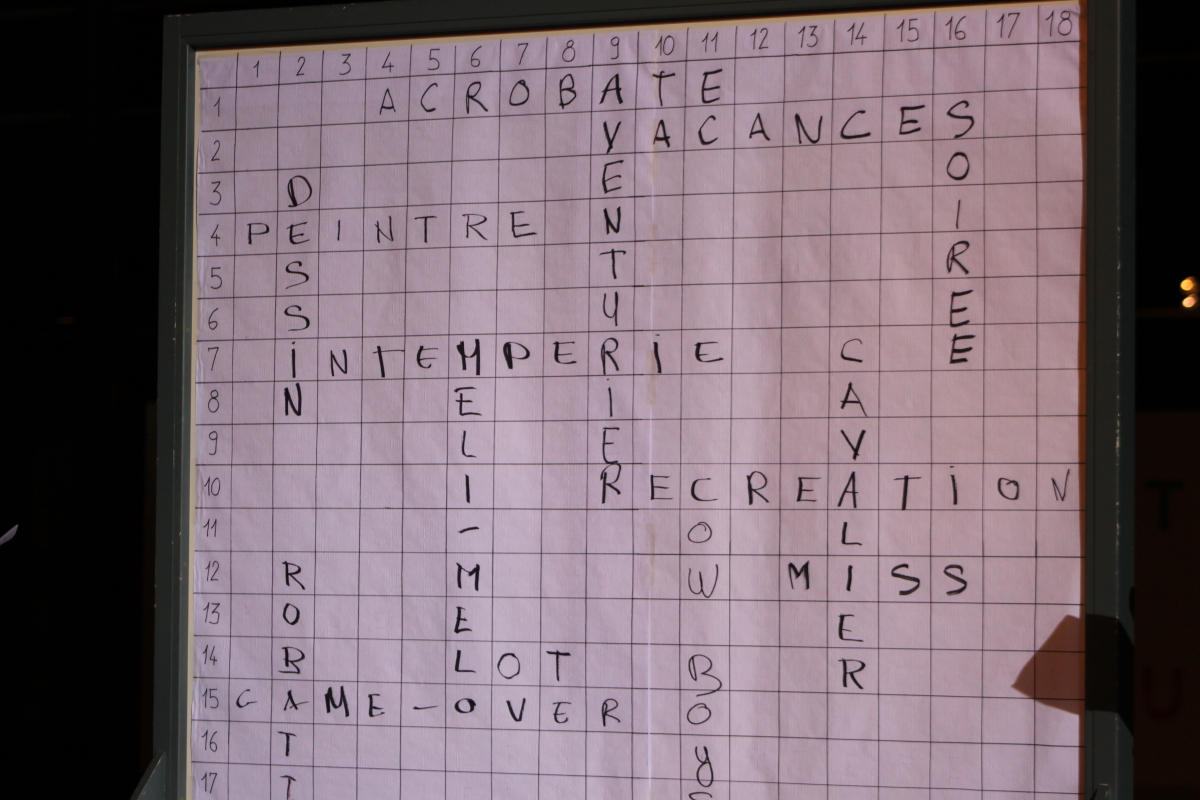 1 2 3 4 5 6 7 8 9 10 11 12 13 14 15 16 17 18
1 A C R O B A T E
2 V A C A N C E S
3 D E O
4 P E I N T R E N I
5 S T R
6 S U E
7 I N T E M P E R I E C E
8 N E I A
9 L E V
10 I R E C R E A T I O N
11 - O L
12 R M W M I S S
13 O E E
14 B L O T B R
15 G A M E - O V E R O
16 T Y
17 T S
T
U